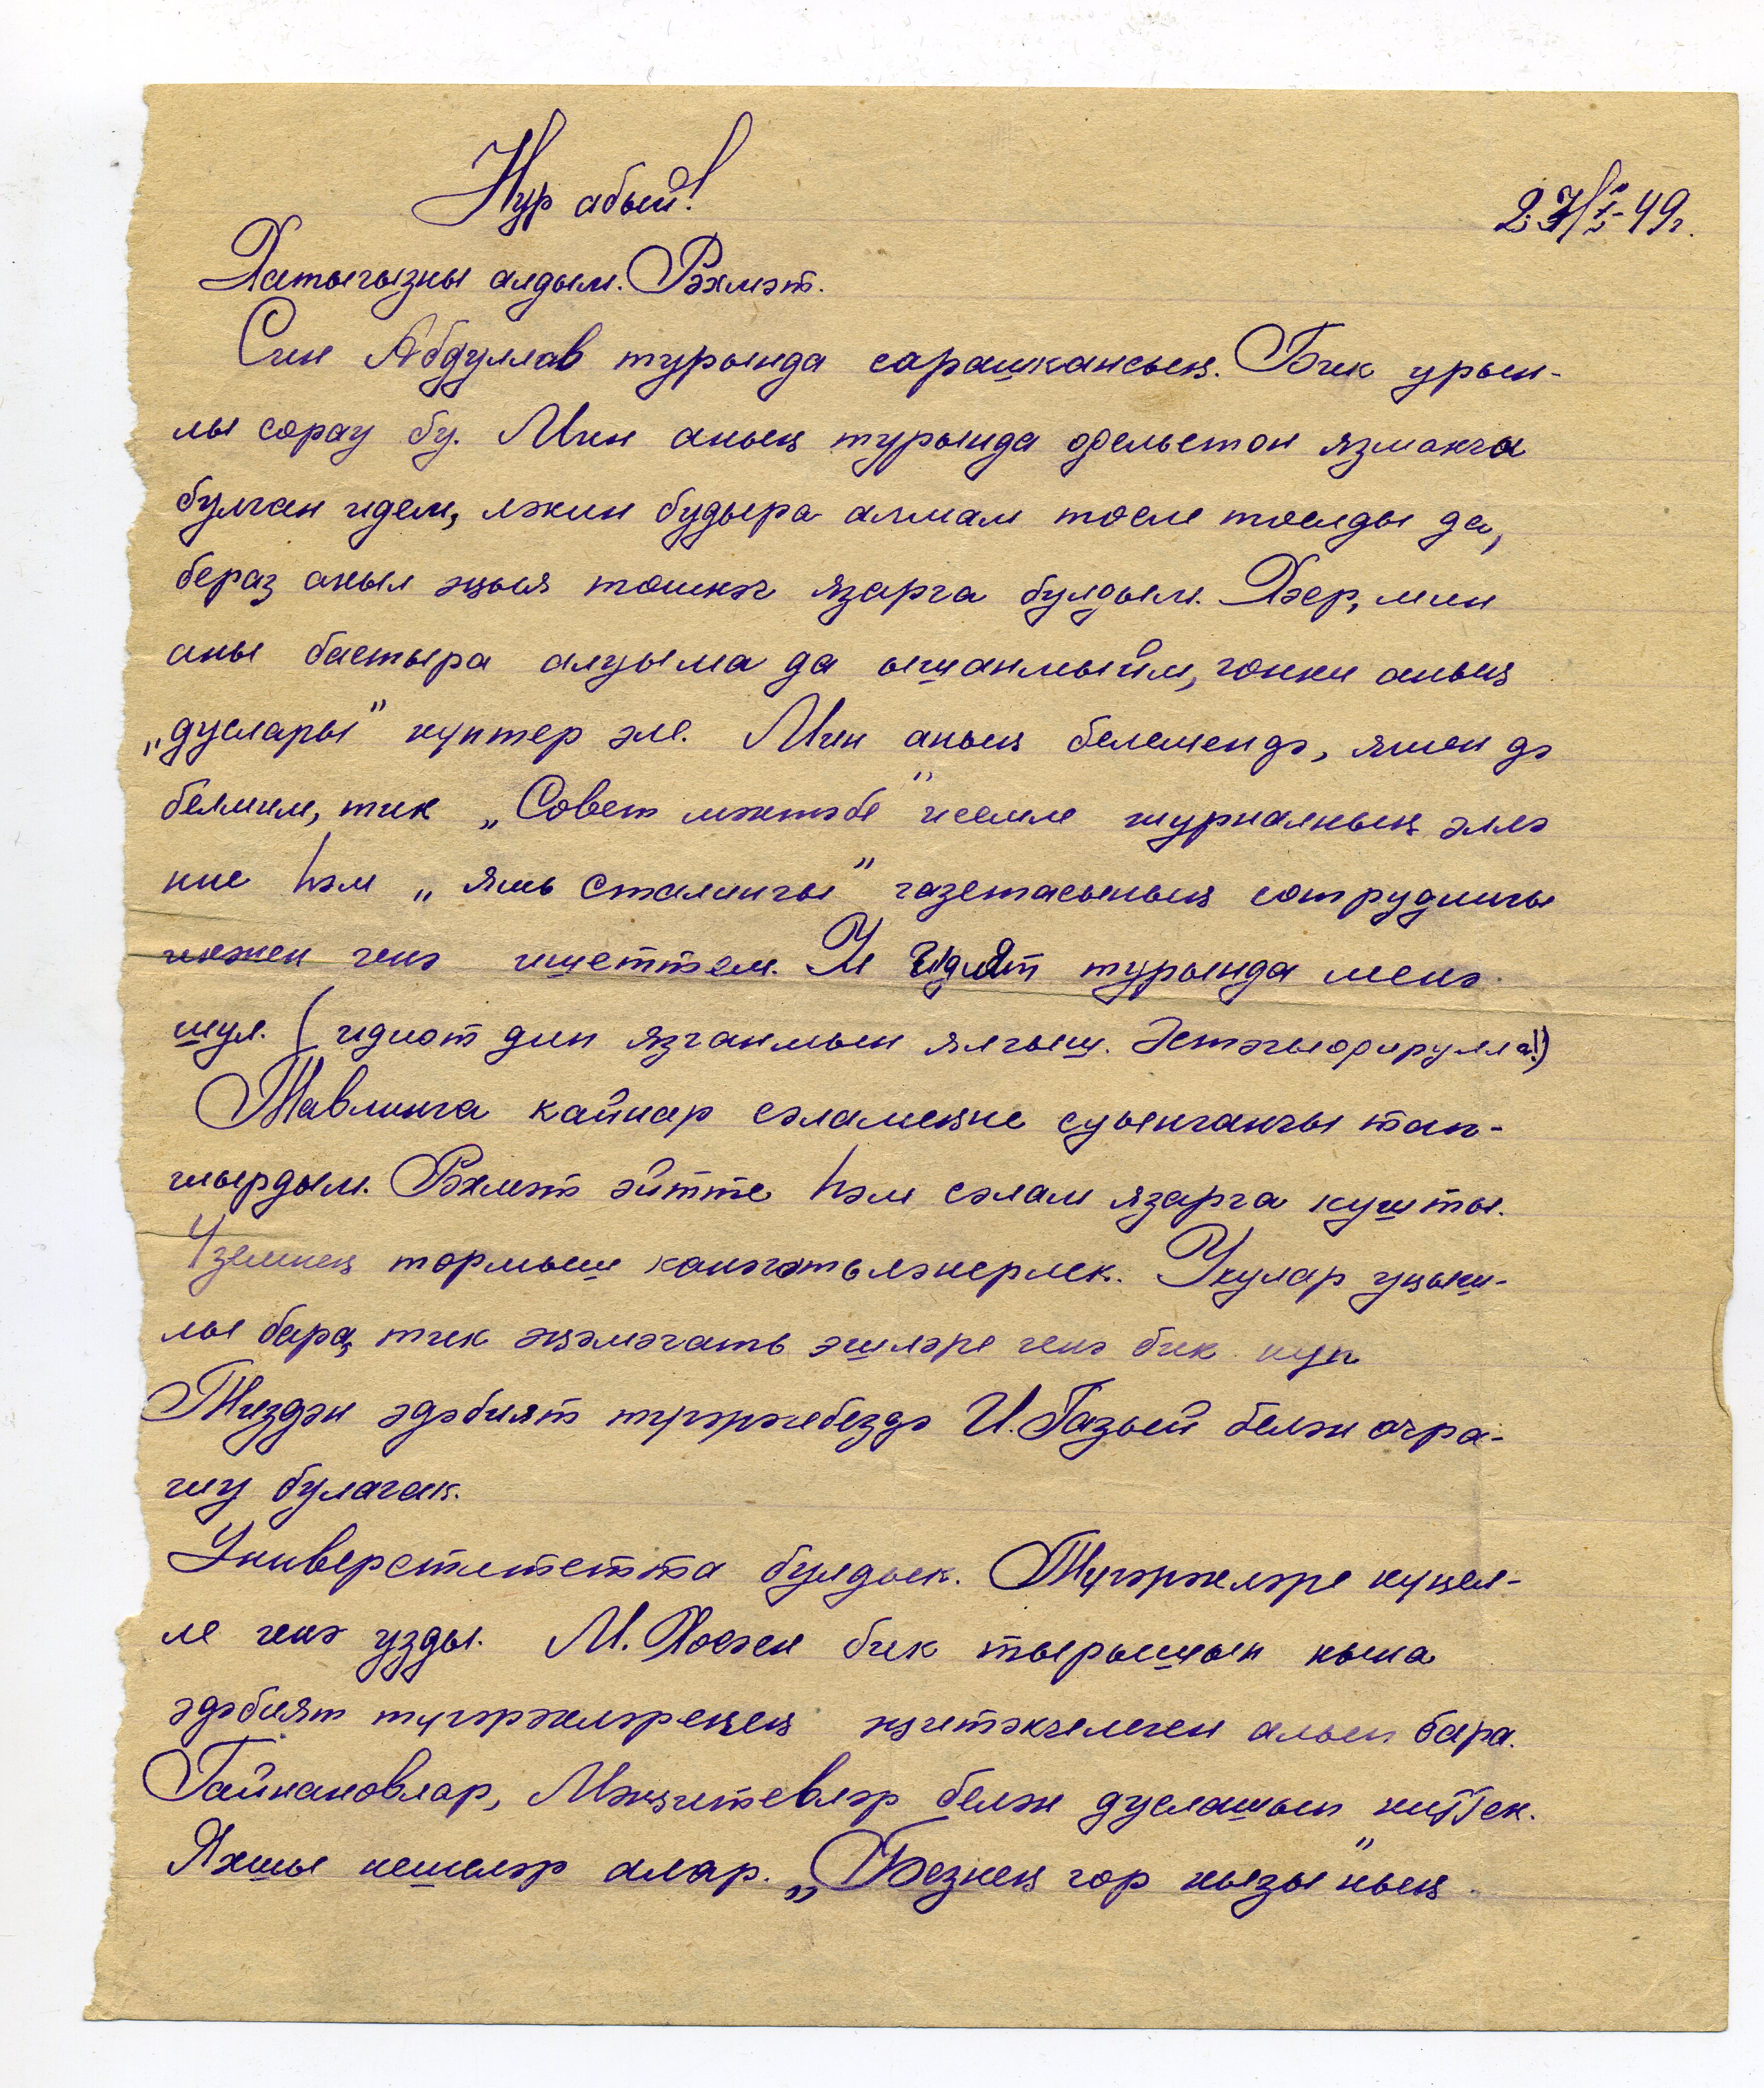 Нур абый!
27/I-49г.
Хатыгызны алдым. Рәхмәт.
Син Абдуллав турында сорашкансың. Бик урын-
лы сорау бу. Мин аның турында фельетон язмакчы
булган идем, ләкин будыра алмам төсле тоелды да,
бераз акыл җыя төшкәч язарга булдым. Хәер, мин
аны бастыра алуыма да ышанмыйм, чөнки аның
„дуслары" күптер әле. Мин аның белемен дә, яшен дә
белмим, тик „Совет мәктәбе" исемле журналның әллә
ние һәм „Яшь сталинчы" газетасының сотруднигы
икәнен генә ишеттем. И Идият турында менә
шул. (идиот дип язганмын ялгыш. Әстәгъфирулла!!)
Тавлинга кайнар сәламеңне суынганчы тап-
шырдым. Рәхмәт әйтте һәм сәлам язарга кушты.
Үземнең тормыш канәгатьләнерлек. Укулар уңыш-
лы бара, тик җәмәгать эшләре генә бик күп
Тиздән әдәбият түгәрәгебездә И. Газый белән очра-
шу булачак.
Университетта булдык. Түгәрәкләре күңел-
ле генә узды. М. Хөсәен бик тырышып кына
әдәбият түгәрәкләренең җитәкчелеген алып бара.
Гайнановлар, Мәҗитевләр белән дуслашып киттек.
Яхшы кешеләр алар. „Безнең чор кызы"ның